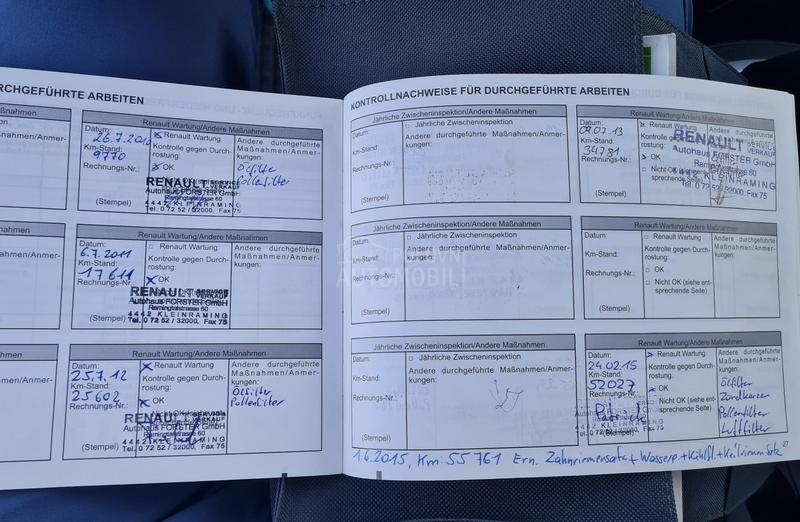 CHGEFÜHRTE ARBEITEN
Maßnahmen
Maßnahmen/Anmer-
Renault Wartung/Andere Maßnahmen
Datum:
26.7.2010
Km-Stand:
9770
Rechnungs-Nr.:
(Stempel)
Renault Wartung
Kontrolle gegen Durch-
rostung:
OK
RENAULT SERVICE
VERKAUF
Autohaus FORSTER GmbH
Ramingtalstrasse 60
4442 KLEINRAMING
Tel. 0 72 52 / 32000, Fax 75
Andere durchgeführte
Maßnahmen/Anmer-
kungen:
Ölfilter
Pollenfilter
Renault Wartung/Andere Maßnahmen
Datum:
6.7.2011
Km-Stand:
17611
Rechnungs-Nr.:
(Stempel)
Renault Wartung
Kontrolle gegen Durch-
rostung:
OK
RENAULT SERVICE
VERKAUF
Autohaus FORSTER GmbH
Ramingtalstrasse 60
4442 KLEINRAMING
Tel. 0 72 52 / 32000, Fax 75
Andere durchgeführte
Maßnahmen/Anmer-
kungen:
Renault Wartung/Andere Maßnahmen
Datum:
25.7.12
Km-Stand:
25602
Rechnungs-Nr.:
(Stempel)
Renault Wartung
Kontrolle gegen Durch-
rostung:
OK
Nicht OK
RENAULT SERVICE
VERKAUF
Autohaus FORSTER GmbH
Ramingtalstrasse 60
4442 KLEINRAMING
Tel. 0 72 52 / 32000, Fax 75
Andere durchgeführte
Maßnahmen/Anmer-
kungen:
Ölfilter
Pollenfilter
KONTROLLNACHWEISE FÜR DURCHGEFÜHRTE ARBEITEN
Jährliche Zwischeninspektion/Andere Maßnahmen
Datum:
Km-Stand:
Rechnungs-Nr.:
(Stempel)
Jährliche Zwischeninspektion
Andere durchgeführte Maßnahmen/Anmer-
kungen:
Renault Wartung/Andere Maßnahmen
Datum:
09.07.13
Km-Stand:
34781
Rechnungs-Nr.:
(Stempel)
Renault Wartung
Kontrolle
rostung:
OK
Nicht OK
sprechende
Andere durchgeführte
RENAULT SERVICE
VERKAUF
Autohaus FORSTER GmbH
Ramingtalstrasse 60
4442 KLEINRAMING
Tel. 0 72 52 / 32000, Fax 75
Jährliche Zwischeninspektion/Andere Maßnahmen
Datum:
Km-Stand:
Rechnungs-Nr.:
(Stempel)
Jährliche Zwischeninspektion
Andere durchgeführte Maßnahmen/Anmer-
kungen:
PRIVATNI
AUTOMOBILI
Renault Wartung/Andere Maßnahmen
Datum:
Km-Stand:
Rechnungs-Nr.:
(Stempel)
Renault Wartung
Kontrolle gegen Durch-
rostung:
OK
Nicht OK (siehe ent-
sprechende Seite)
Andere durchgeführte
Maßnahmen/Anmer-
kungen:
Jährliche Zwischeninspektion/Andere Maßnahmen
Datum:
Km-Stand:
Rechnungs-Nr.:
(Stempel)
Jährliche Zwischeninspektion
Andere durchgeführte Maßnahmen/Anmer-
kungen:
Renault Wartung/Andere Maßnahmen
Datum:
24.02.15
Km-Stand:
52027
Rechnungs-Nr.
(Stempel)
Renault Wartung
Kontrolle gegen Durch-
rostung:
OK
Nicht OK (siehe ent-
sprechende Seite)
Andere durchgeführte
Maßnahmen/Anmer-
kungen:
Ölfilter
Zündkerzen
Pollenfilter
Luftfilter
27
1.6.2015, Km: 55 761 Ern. Zahnriemensatz + Wasserp. + Kühlfl. + Keilriemensatz